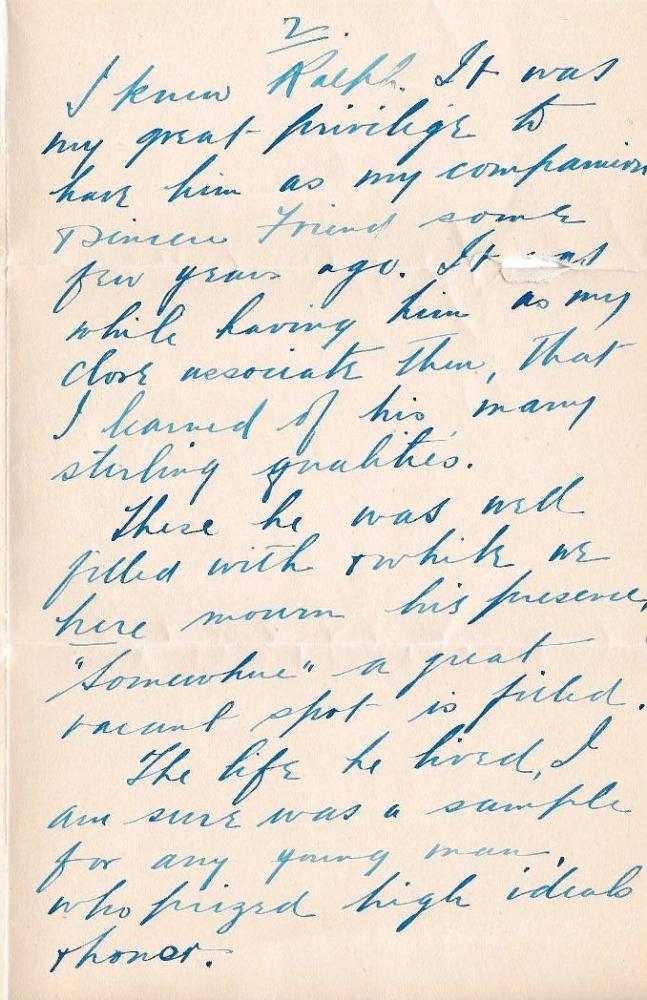 2.
I knew Ralph. It was
my great privilige to
have him as my companion
& sincere Friend some
few years ago. It was
while having him as my
close associate then, that
I learned of his many
sterling qualities.
These he was well
filled with & while we
here mourn his presence,
"Somewhere" a great
vacant spot is filled.
The life he lived, I
am sure was a sample
for any young man,
who prized high ideals
& honor.